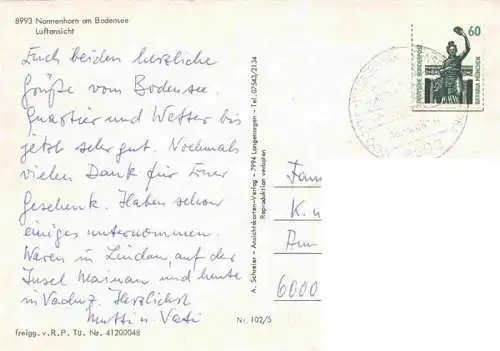 8993 Nonnenhorn am Bodensee
Luftansicht
Euch beiden herzliche
Grüße vom Bodensee.
Quartier und Wetter bis
jetzt sehr gut. Nochmals
vielen Dank für Euer
Geschenk. Haben schon
einiges unternommen.
Waren in Lindau, auf der
Insel Mainau und heute
in Vaduz. Herzlichst
Mutti u. Vati
freigg. v. R.P. TÜ. Nr. 41200048
Nr. 102/5
A. Schreier - Ansichtskarten-Verlag - 7994 Langenargen - Tel. 07543/2134
Reproduktion verboten
60
DEUTSCHE BUNDESPOST
BAVARIA MÜNCHEN
Fam
K. u
Am
6000